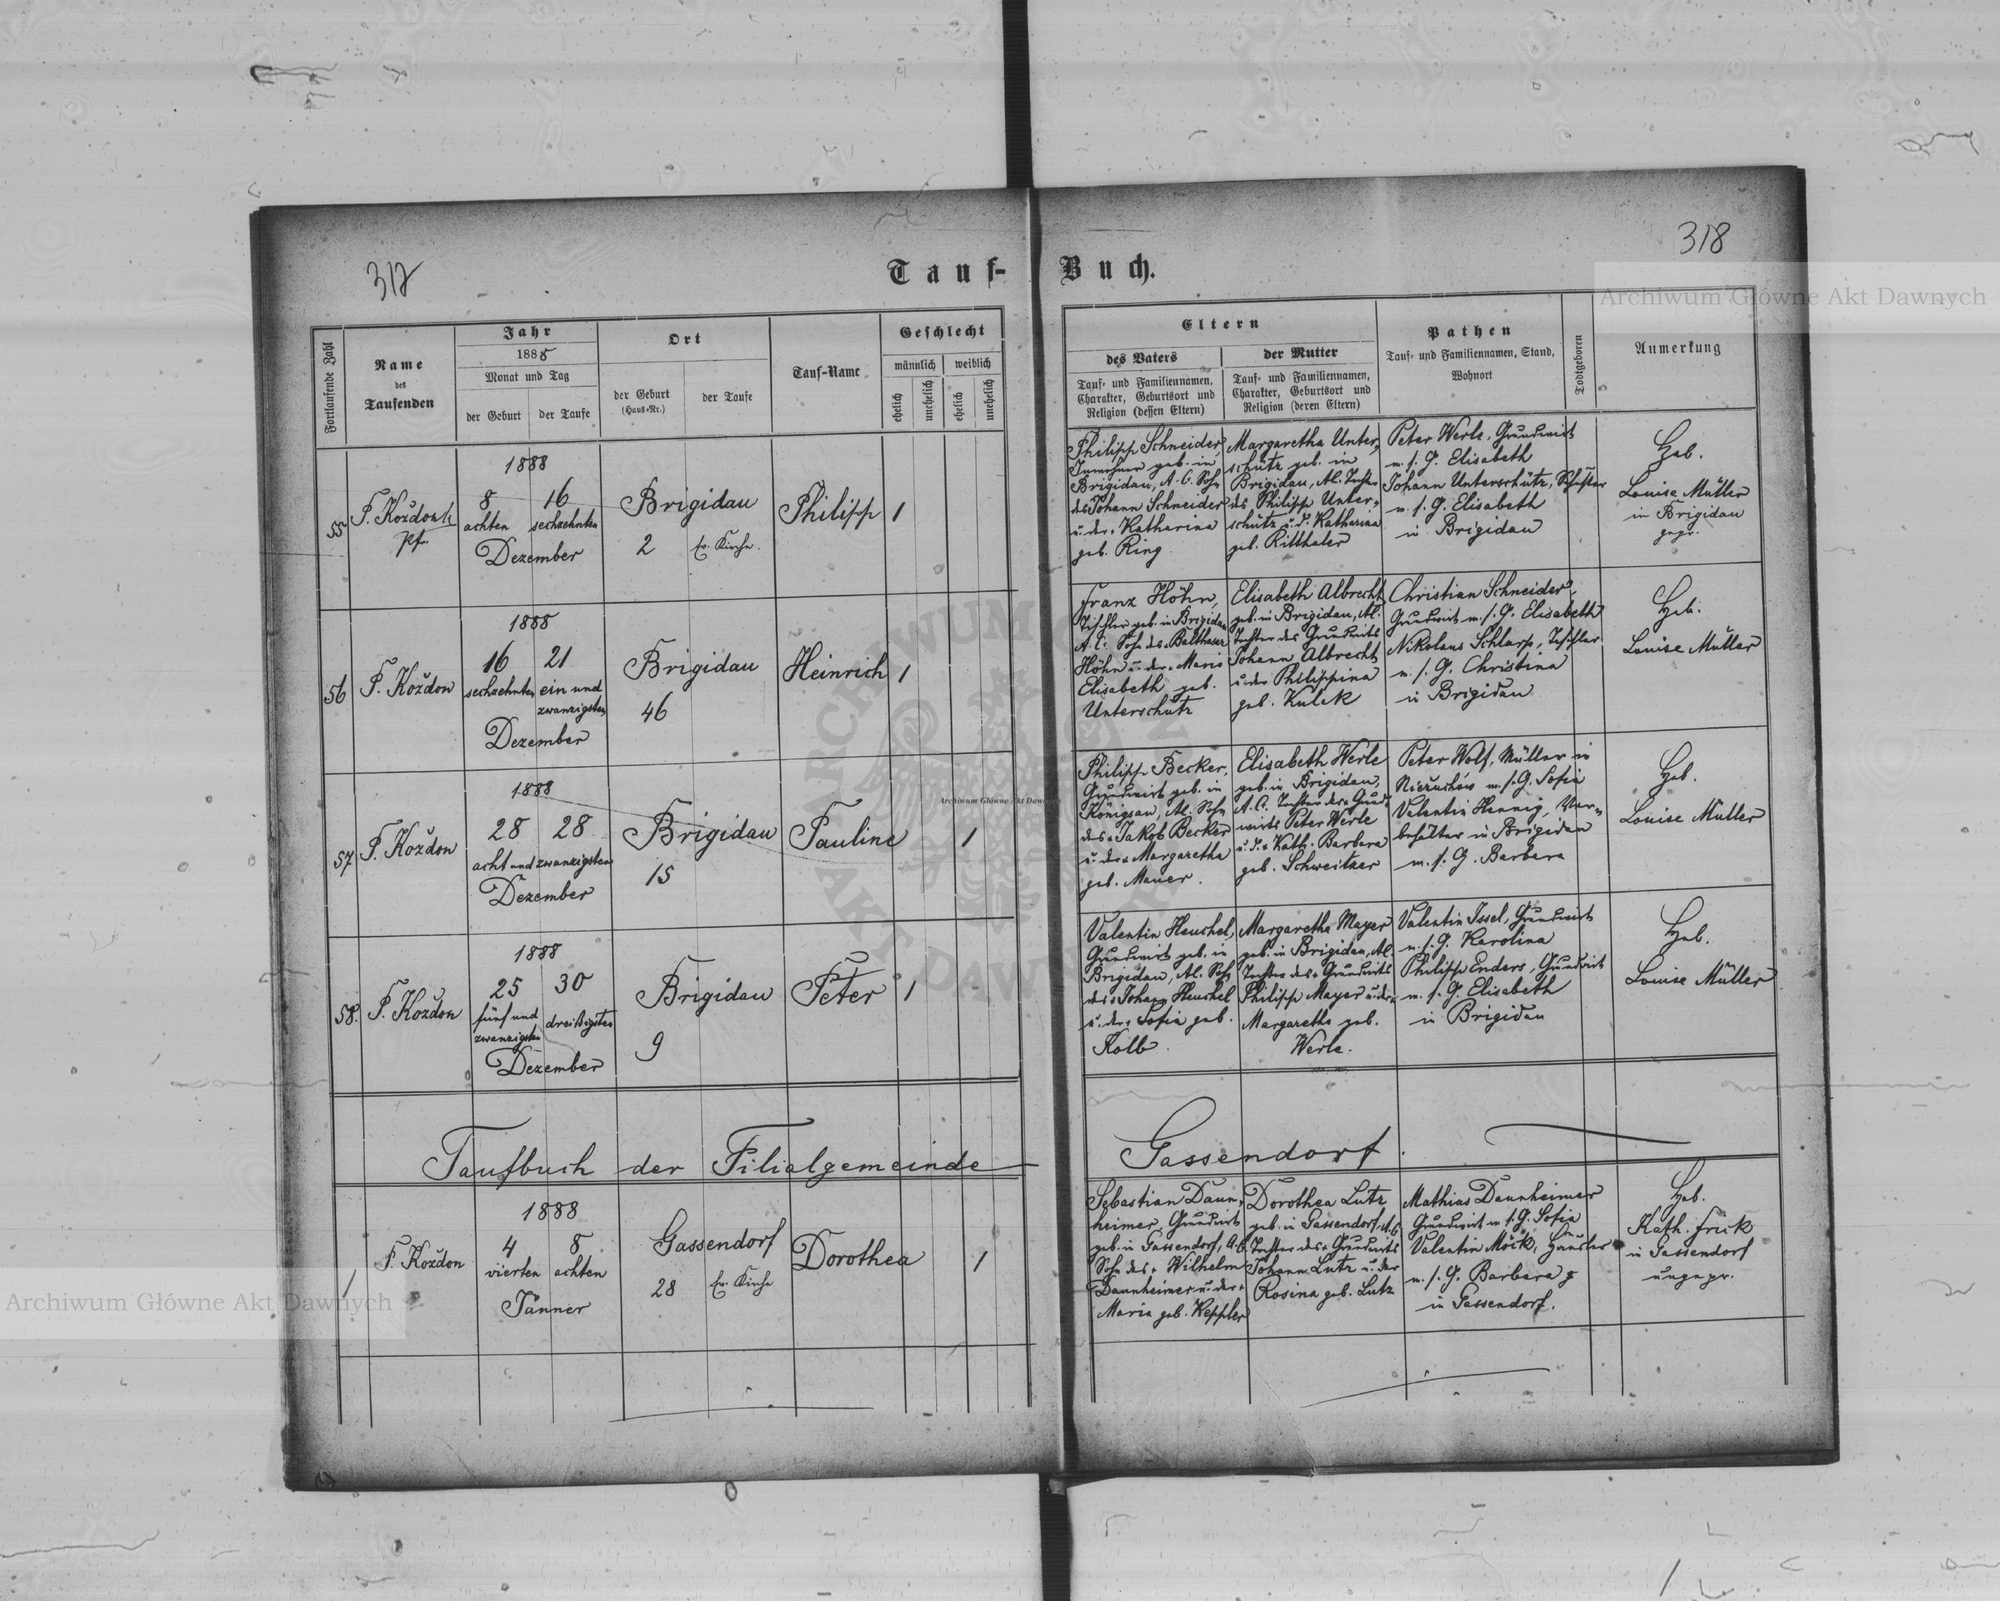 317
318
Tauf-
Buch.
Fortlaufende Zahl
Name
des
Taufenden
Jahr
1888
Monat und Tag
der Geburt
der Taufe
Ort
der Geburt
(Haus-Nr.)
der Taufe
Tauf-Name
Geschlecht
männlich
weiblich
ehelich
unehelich
ehelich
unehelich
Eltern
des Vaters
Tauf- und Familiennamen,
Charakter, Geburtsort und
Religion (dessen Eltern)
der Mutter
Tauf- und Familiennamen,
Charakter, Geburtsort und
Religion (deren Eltern)
Pathen
Tauf- und Familiennamen, Stand,
Wohnort
Todtgeboren
Anmerkung
55
F. Koždon
Pfr.
1888
8
achten
16
sechzehnten
Dezember
Brigidau
2
Ev. Kirche.
Philipp
1
Philipp Schneider,
Inwohner geb. in
Brigidau, A.C. Sohn
des Johann Schneider
u. der Katharina
geb. Ring.
Margaretha Unter-
schütz geb. in
Brigidau, A.C. Tochter
des Philipp Unter-
schütz u. d. Katharina
geb. Ritthaler
Peter Werle, Grundwirt
m. s. G. Elisabeth
Johann Unterschütz, Schuster
m. s. G. Elisabeth
in Brigidau
Heb.
Louise Müller
in Brigidau
gepr.
56
F. Koždon
1888
16
sechzehnten
21
ein und
zwanzigsten
Dezember
Brigidau
46
Heinrich
1
Franz Höhn,
Tischler geb. in Brigidau
A.C. Sohn des Balthasar
Höhn u. der Maria
Elisabeth geb.
Unterschütz
Elisabeth Albrecht
geb. in Brigidau, A.C.
Tochter des Grundwirts
Johann Albrecht
u. der Philippina
geb. Kulek
Christian Schneider,
Grundwirt m. s. G. Elisabeth
Nikolaus Schlarp, Tischler
m. s. G. Christina
in Brigidau
Heb.
Louise Müller
57
F. Koždon
1888
28
28
acht und zwanzigsten
Dezember
Brigidau
15
Pauline
1
Philipp Becker,
Grundwirt geb. in
Königsau, A.C. Sohn
des Jakob Becker
u. der Margaretha
geb. Mauer.
Elisabeth Werle
geb. in Brigidau,
A.C. Tochter des Grund-
wirts Peter Werle
u. d. Kath. Barbara
geb. Schweitzer
Peter Wolf, Müller in
Nieżuchów m. s. G. Sofia
Valentin Hennig, Vor-
behälter in Brigidau
m. s. G. Barbara
Heb.
Louise Müller
58.
F. Koždon
1888
25
fünf und
zwanzigsten
30
dreißigsten
Dezember
Brigidau
9
Peter
1
Valentin Heuchel,
Grundwirt geb. in
Brigidau, A.C. Sohn
des Johann Heuchel
u. der Sofia geb.
Kolb.
Margaretha Mayer
geb. in Brigidau, A.C.
Tochter des Grundwirts
Philipp Mayer u. der
Margaretha geb.
Werle.
Valentin Issel, Grundwirt
m. s. G. Karolina
Philipp Enders, Grundwirt
m. s. G. Elisabeth
in Brigidau
Heb.
Louise Müller
Taufbuch der Filialgemeinde
Gassendorf.
1
F. Koždon
1888
4
vierten
8
achten
Jänner
Gassendorf
28
Ev. Kirche
Dorothea
1
Sebastian Dann-
heimer, Grundwirt
geb. in Gassendorf, A.C.
Sohn des Wilhelm
Dannheimer u. der
Maria geb. Keppler
Dorothea Lutz
geb. in Gassendorf, A.C.
Tochter des Grundwirts
Johann Lutz u. der
Rosina geb. Lutz
Mathias Dannheimer
Grundwirt m. s. G. Sofia
Valentin Möck, Häusler
m. s. G. Barbara
in Gassendorf.
Heb.
Kath. Frick
in Gassendorf
ungepr.
Archiwum Główne Akt Dawnych
Archiwum Główne Akt Dawnych
Archiwum Główne Akt Dawnych